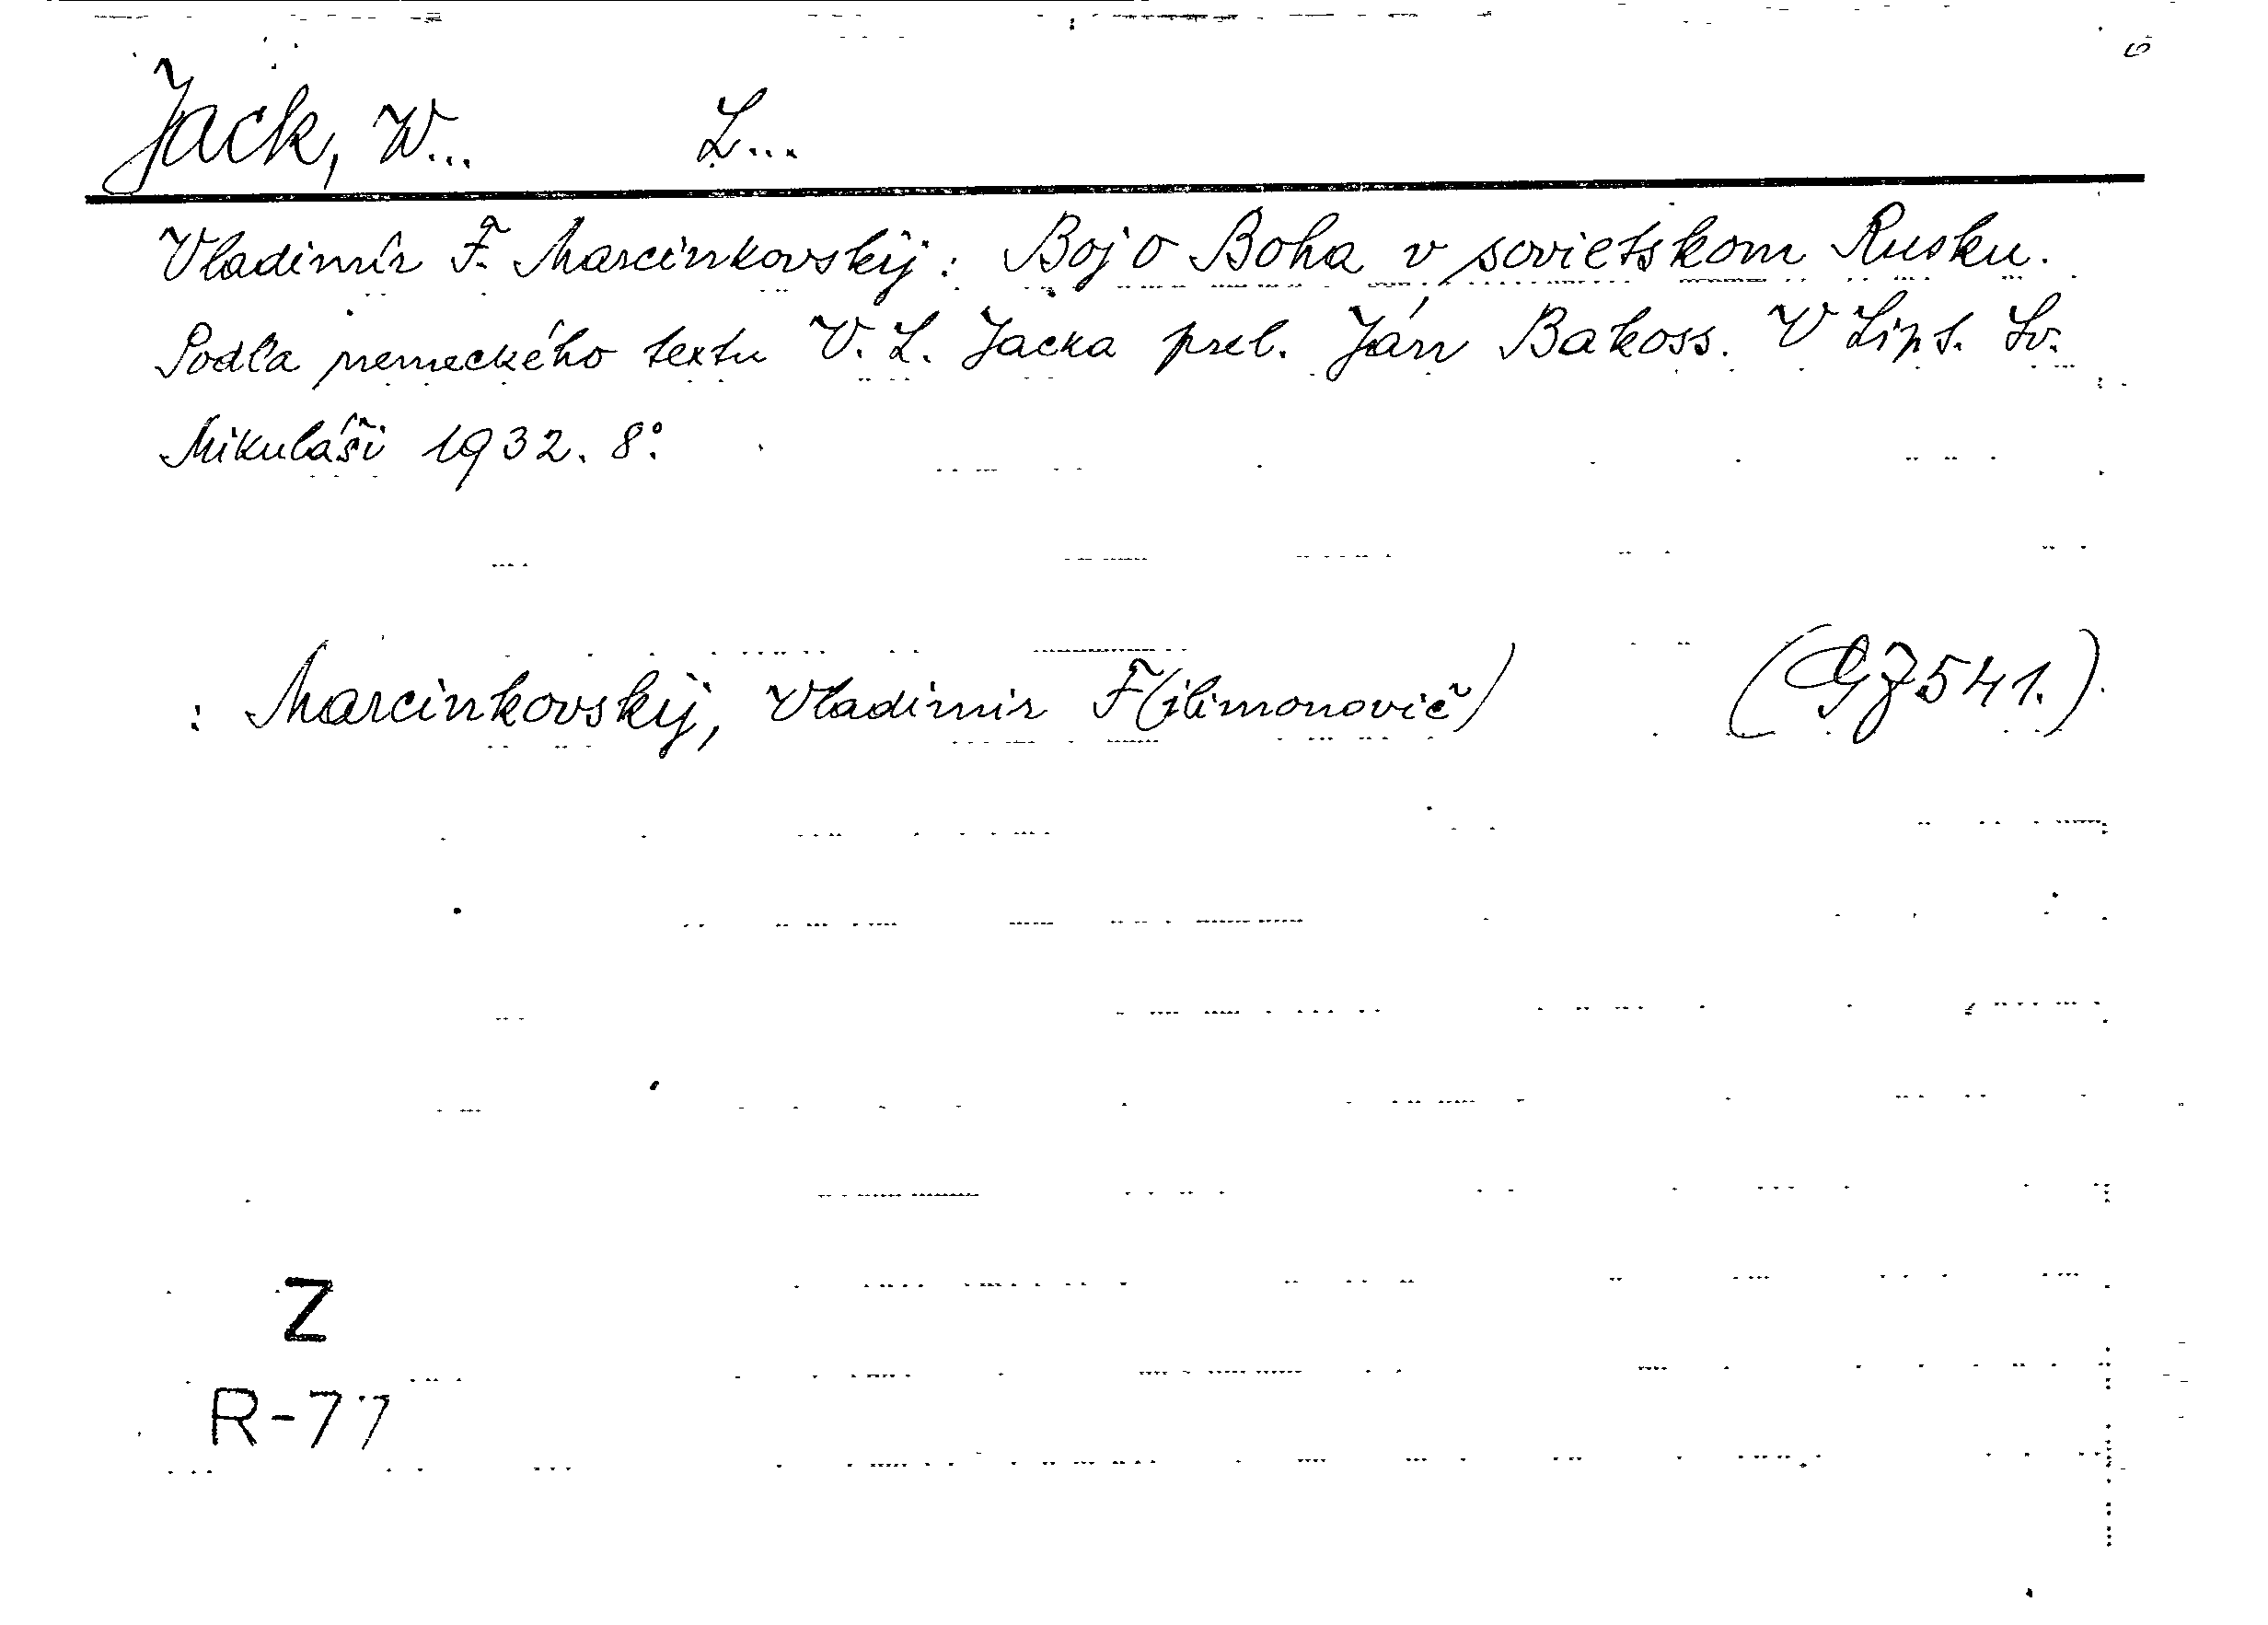 Jack, W... L...
Vladimír F. Marcinkovskij: Boj o Boha v sovietskom Rusku.
Podľa nemeckého textu V. L. Jacka prel. Ján Bakoss. V Lipt. Sv.
Mikuláši 1932. 8°.
: Marcinkovskij, Vladimir F(ilimonovič) (GJ 541.)
Z
R-77